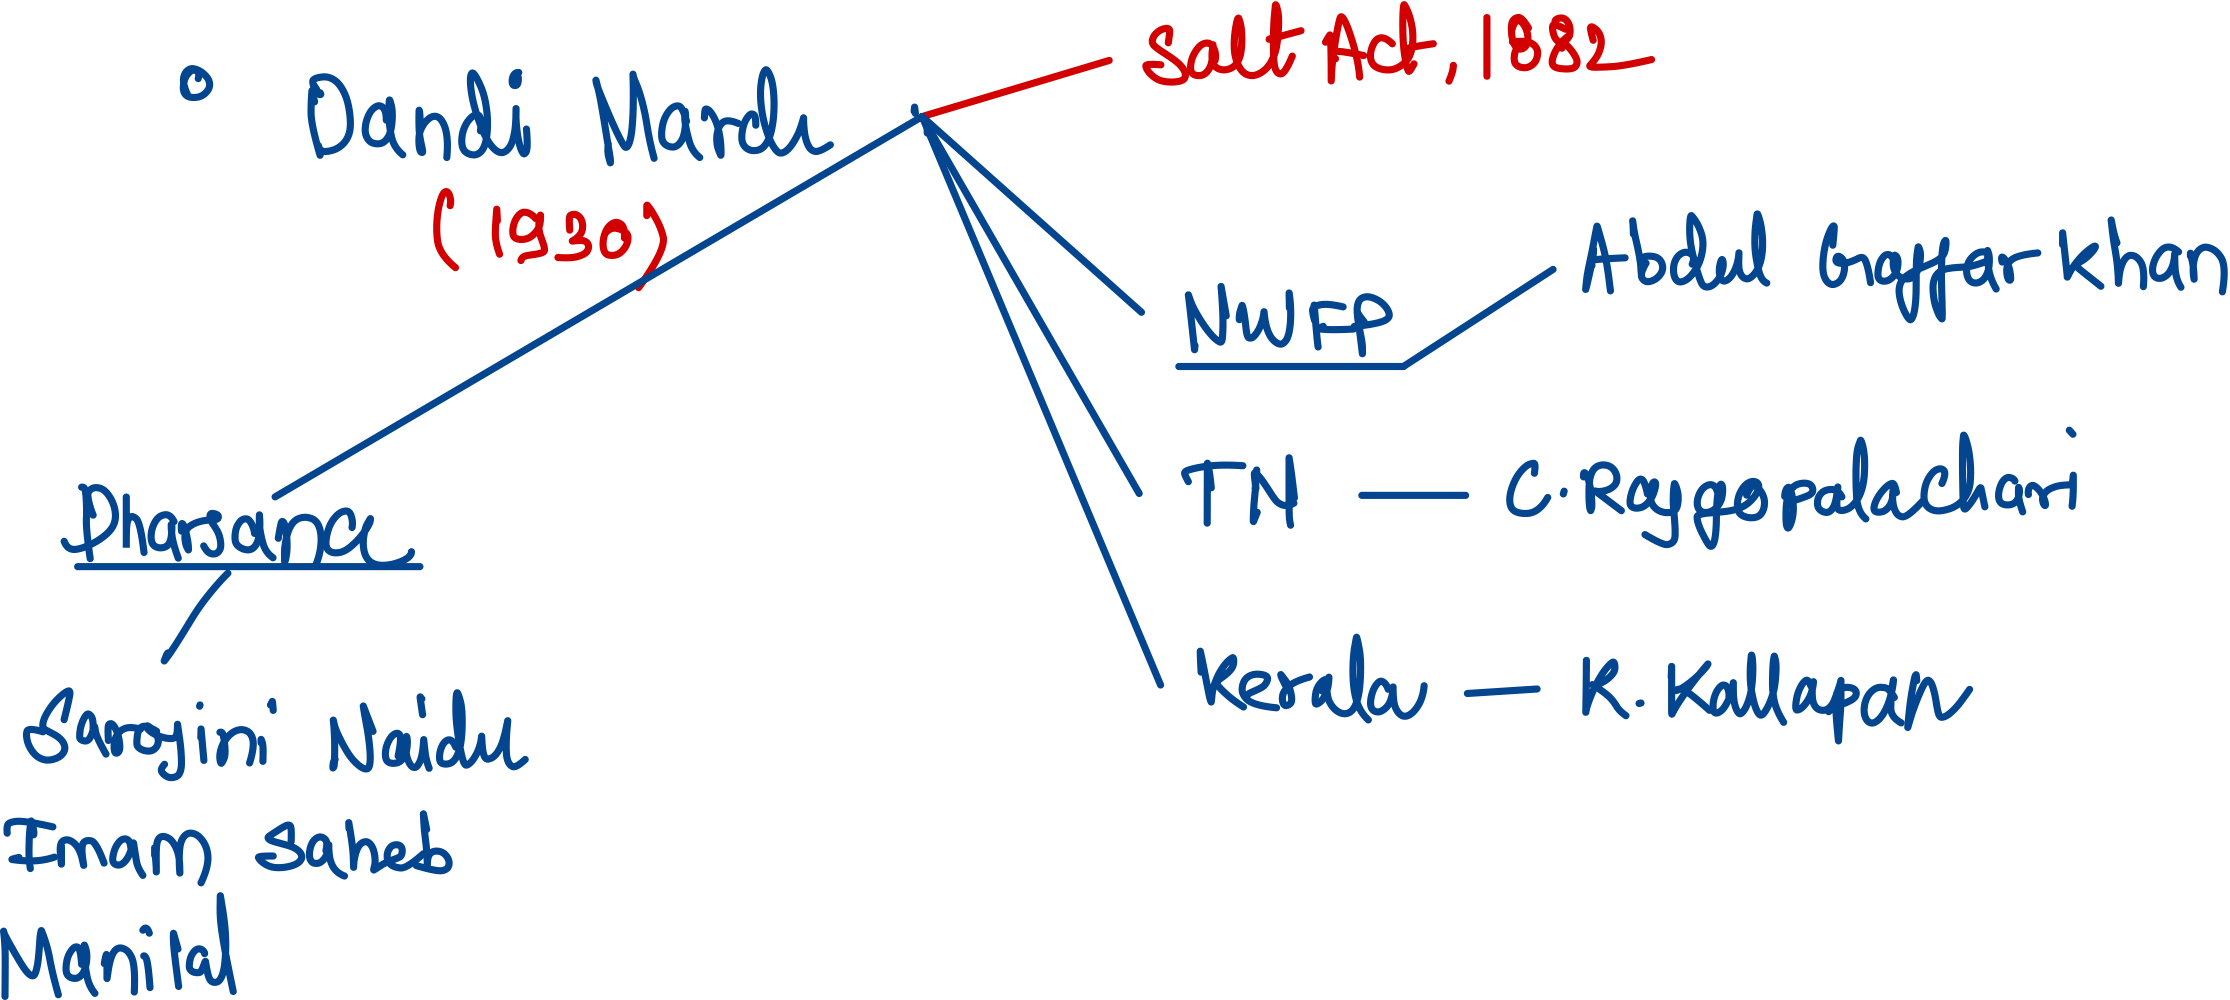 Dandi March
(1930)
Salt Act, 1882
NWFP
Abdul Gaffar Khan
TN — C. Rajgopalachari
Kerala — K. Kallapan
Dharsana
Sarojini Naidu
Imam Saheb
Manilal